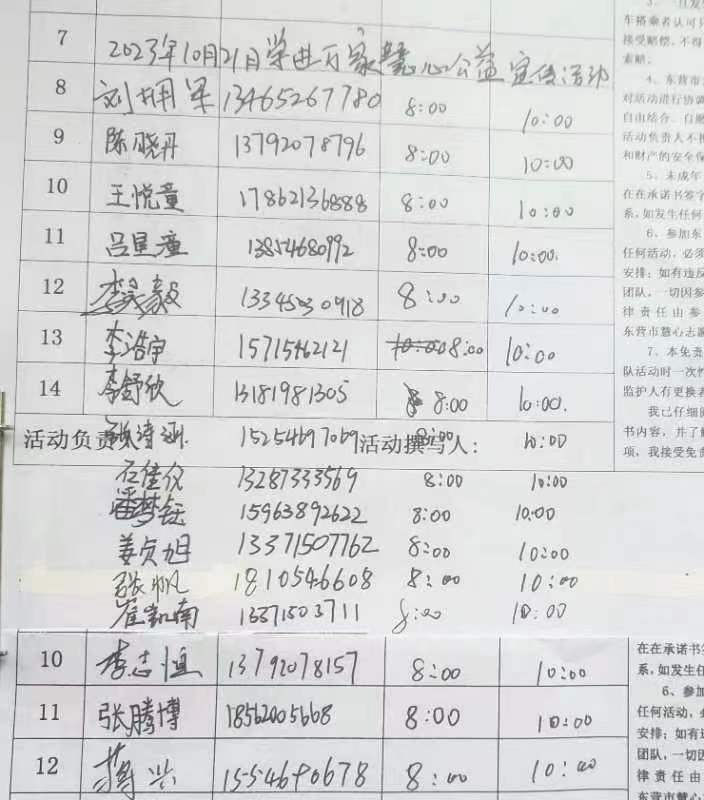 7 2023年10月21日学进万家慧心公益宣传活动
8 刘 军 13465267780 8:00 10:00
9 陈晓丹 13792078796 8:00 10:00
10 王悦童 17862136888 8:00 10:00
11 吕星潼 13854680992 8:00 10:00.
12 李 毅 13345030918 8:00 10:00
13 李浩宇 15715462121 10:00 8:00 10:00
14 李舒欣 13181981305 8:00 10:00.
活动负责人 15254697069 活动撰写人: 8:00 10:00
石佳仪 13287333569 8:00 10:00
潘梦钰 15963892622 8:00 10:00
姜贞旭 13371507762 8:00 10:00
张帆 1810546608 8:00 10:00
崔凯南 13371503711 8:00 10:00
10 李志恒 13792078157 8:00 10:00
11 张腾博 18562005668 8:00 10:00
12 蒋兴 15554690678 8:00 10:00
车搭乘者认可
接受赔偿,不得
索赔。
4、东营市
对活动进行协调
自由结合、自愿
活动负责人不
和财产的安全保
5、未成年
在在承诺书签字
系,如发生任何
6、参加东
任何活动,必须
安排;如有违反
团队,一切因参
律责任由参
东营市慧心志愿
7、本免责
队活动时一次性
监护人有更换
我已仔细
书内容,并了解
项,我接受免责
在在承诺书
系,如发生任
6、参加
任何活动,必
安排;如有违
团队,一切因
律责任由
东营市慧心